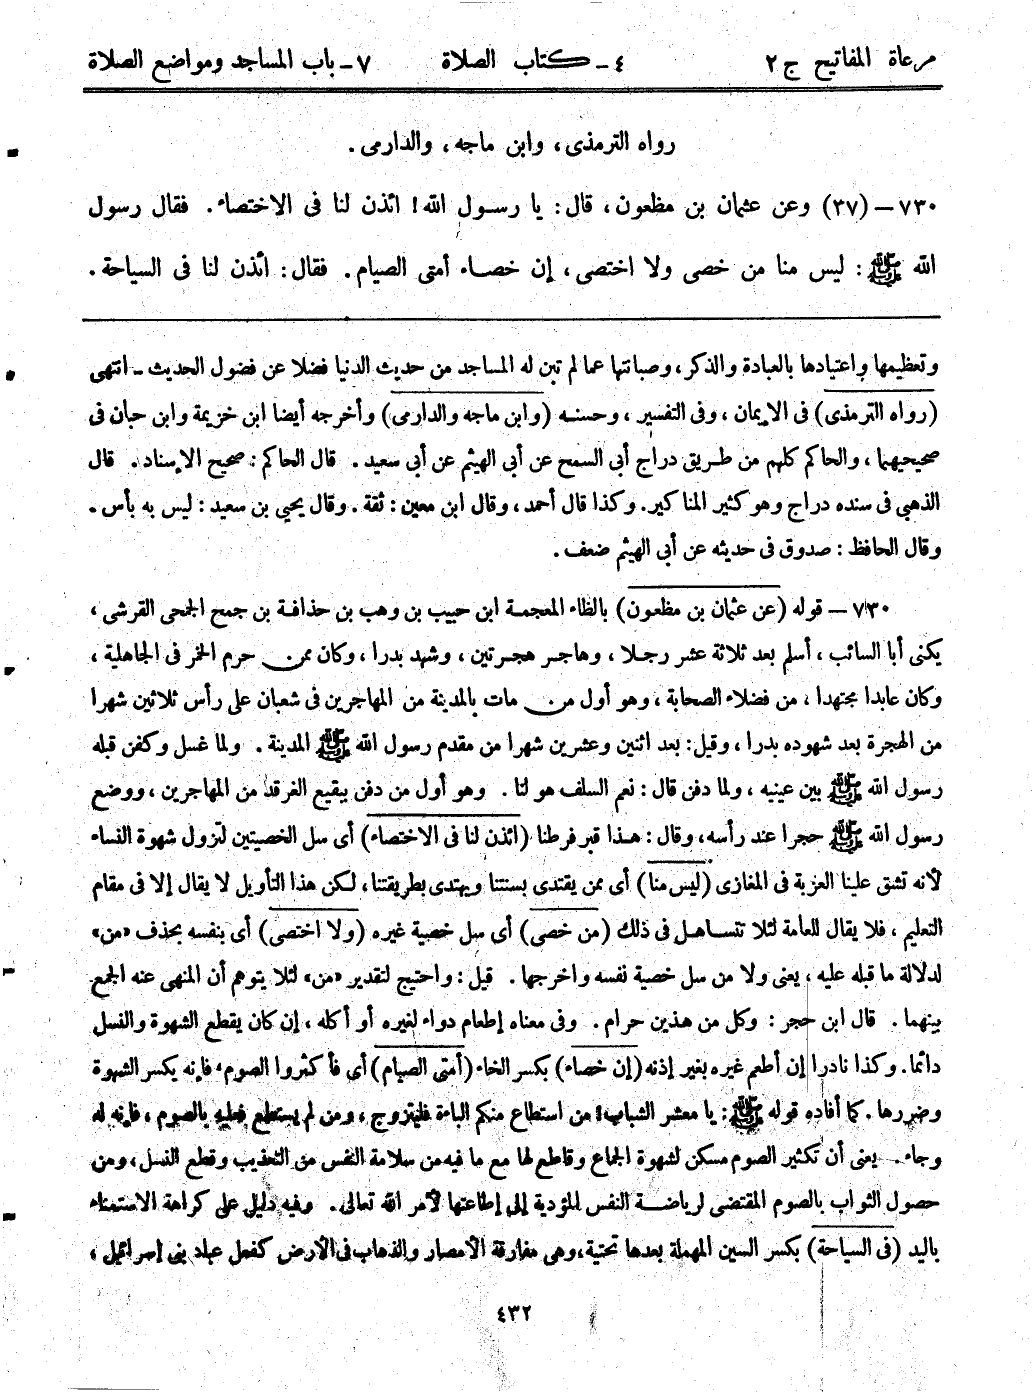 مرعاة المفاتيح ج ٢ ٤ - كتاب الصلاة ٧ - باب المساجد ومواضع الصلاة
رواه الترمذى، وابن ماجه، والدارمى.
٧٣٠ - (٣٧) وعن عثمان بن مظعون، قال: يا رسول الله! ائذن لنا فى الاختصاء. فقال رسول
الله ﷺ: ليس منا من خصى ولا اختصى، إن خصاء أمتى الصيام. فقال: ائذن لنا فى السياحة.
وتعظيمها واعتيادها بالعبادة والذكر، وصيانتها عما لم تبن له المساجد من حديث الدنيا فضلا عن فضول الحديث - انتهى
(رواه الترمذى) فى الإيمان، وفى التفسير، وحسنه (وابن ماجه والدارمى) وأخرجه أيضا ابن خزيمة وابن حبان فى
صحيحيهما، والحاكم كلهم من طريق دراج أبي السمح عن أبي الهيثم عن أبي سعيد. قال الحاكم: صحيح الإسناد. قال
الذهبي فى سنده دراج وهو كثير المناكير. وكذا قال أحمد، وقال ابن معين: ثقة. وقال يحيى بن سعيد: ليس به بأس.
وقال الحافظ: صدوق فى حديثه عن أبي الهيثم ضعف.
٧٣٠ - قوله (عن عثمان بن مظعون) بالظاء المعجمة ابن حبيب بن وهب بن حذافة بن جمح الجمحى القرشى،
يكنى أبا السائب، أسلم بعد ثلاثة عشر رجلا، وهاجر هجرتين، وشهد بدرا، وكان ممن حرم الخمر فى الجاهلية،
وكان عابدا مجتهدا، من فضلاء الصحابة، وهو أول من مات بالمدينة من المهاجرين فى شعبان على رأس ثلاثين شهرا
من الهجرة بعد شهوده بدرا، وقيل: بعد اثنين وعشرين شهرا من مقدم رسول الله ﷺ المدينة. ولما غسل وكفن قبله
رسول الله ﷺ بين عينيه، ولما دفن قال: نعم السلف هو لنا. وهو أول من دفن ببقيع الغرقد من المهاجرين، ووضع
رسول الله ﷺ حجرا عند رأسه، وقال: هذا قبر فرطنا (ائذن لنا فى الاختصاء) أى سل الخصيتين لتزول شهوة النساء
لأنه تشق علينا العزبة فى المغازى (ليس منا) أى ممن يقتدى بسنتنا ويهتدى بطريقتنا، لكن هذا التأويل لا يقال إلا فى مقام
التعليم، فلا يقال للعامة لئلا تتساهل فى ذلك (من خصى) أى سل خصية غيره (ولا اختصى) أى بنفسه بحذف «من»
لدلالة ما قبله عليه، يعنى ولا من سل خصية نفسه واخرجها. قيل: واحتيج لتقدير «من» لئلا يتوهم أن المنهى عنه الجمع
بينهما. قال ابن حجر: وكل من هذين حرام. وفى معناه إطعام دواء لغيره أو أكله، إن كان يقطع الشهوة والنسل
دائما. وكذا نادرا إن أطعم غيره بغير إذنه (إن خصاء) بكسر الخاء (أمتى الصيام) أى فأكثروا الصوم، فإنه يكسر الشهوة
وضررها. كما أفاده قوله ﷺ: يا معشر الشباب! من استطاع منكم الباءة فليتزوج، ومن لم يستطع فعليه بالصوم، فإنه له
وجاء. يعنى أن تكثير الصوم مسكن لشهوة الجماع وقاطع لها مع ما فيه من سلامة النفس من التعذيب وقطع النسل، ومن
حصول الثواب بالصوم المقتضى لرياضة النفس المؤدية إلى إطاعتها لأمر الله تعالى. وفيه دليل على كراهة الاستمناء
باليد (فى السياحة) بكسر السين المهملة بعدها تحتية، وهى مفارقة الأمصار والذهاب فى الأرض كفعل عباد بنى إسرائيل،
٤٣٢